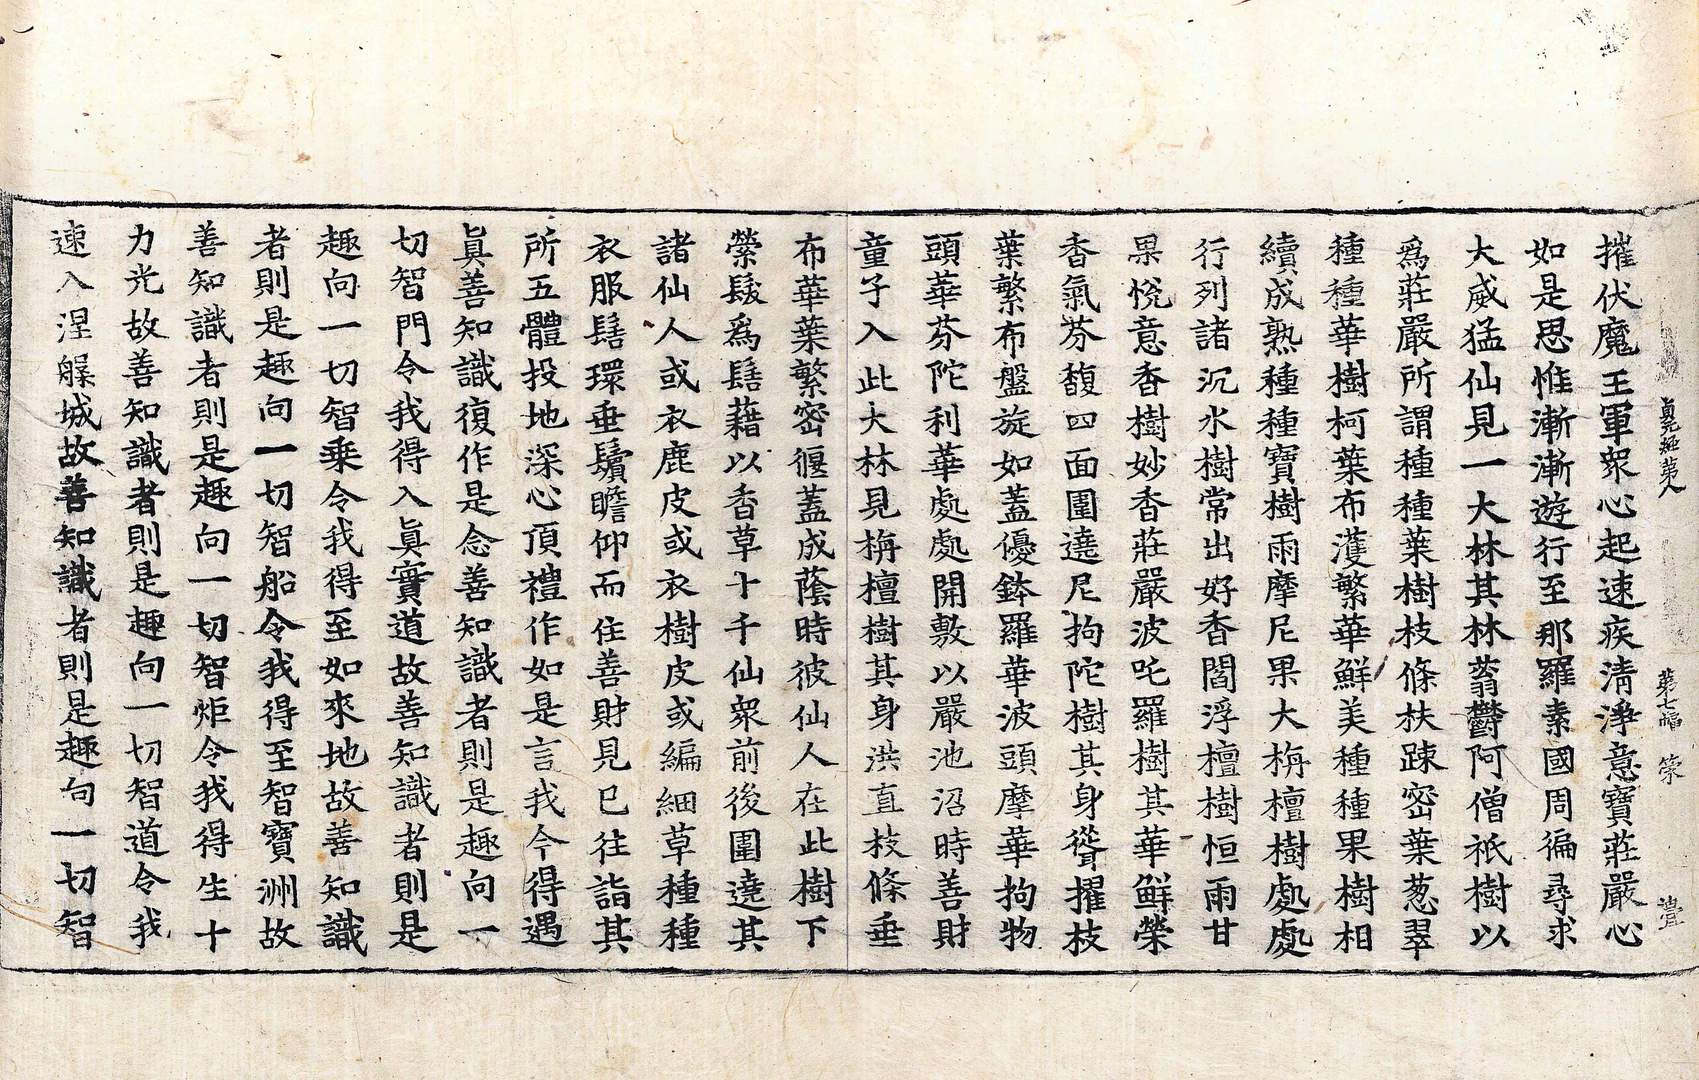 貞元經第八 第七幅 榮 壹
摧伏魔王軍衆心起速疾清淨意寶莊嚴心
如是思惟漸漸遊行至那羅素國周徧尋求
大威猛仙見一大林其林蓊鬱阿僧祇樹以
爲莊嚴所謂種種葉樹枝條扶踈密葉葱翠
種種華樹柯葉布濩繁華鮮美種種果樹相
續成熟種種寶樹雨摩尼果大栴檀樹處處
行列諸沉水樹常出好香閻浮檀樹恒雨甘
果悅意香樹妙香莊嚴波吒羅樹其華鮮榮
香氣芬馥四面圍遶尼拘陀樹其身聳擢枝
葉繁布盤旋如蓋優鉢羅華波頭摩華拘物
頭華芬陀利華處處開敷以嚴池沼時善財
童子入此大林見栴檀樹其身洪直枝條垂
布華葉繁密偃蓋成蔭時彼仙人在此樹下
縈髮爲髻藉以香草十千仙衆前後圍遶其
諸仙人或衣鹿皮或衣樹皮或編細草種種
衣服髻環垂鬢瞻仰而住善財見已往詣其
所五體投地深心頂禮作如是言我今得遇
眞善知識復作是念善知識者則是趣向一
切智門令我得入眞實道故善知識者則是
趣向一切智乘令我得至如來地故善知識
者則是趣向一切智船令我得至智寶洲故
善知識者則是趣向一切智炬令我得生十
力光故善知識者則是趣向一切智道令我
速入涅槃城故善知識者則是趣向一切智